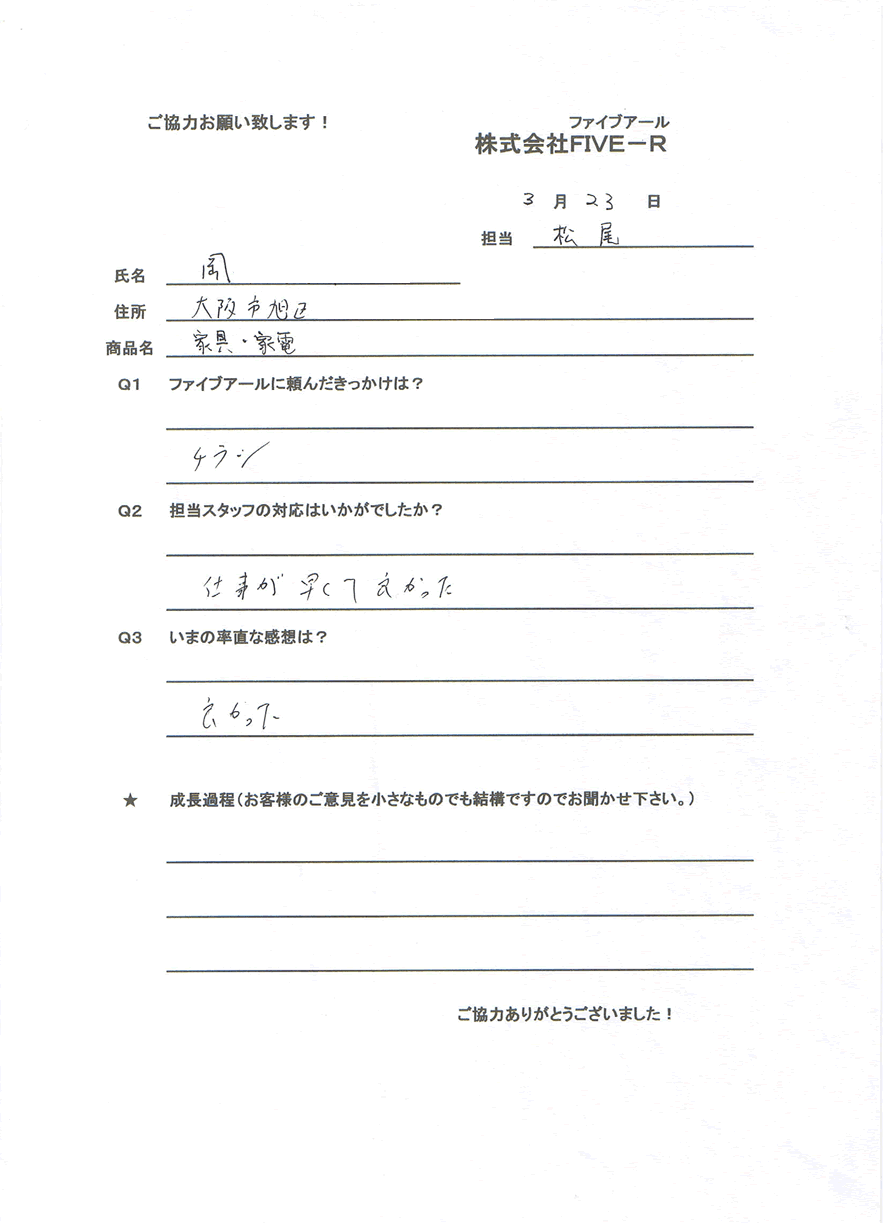 ご協力お願い致します！
ファイブアール
株式会社FIVE－R
3 月 23 日
担当 松尾
氏名
住所 大阪市旭区
商品名 家具・家電
Q1 ファイブアールに頼んだきっかけは？
チラシ
Q2 担当スタッフの対応はいかがでしたか？
仕事が早くて良かった
Q3 いまの率直な感想は？
良かった
★ 成長過程（お客様のご意見を小さなものでも結構ですのでお聞かせ下さい。）
ご協力ありがとうございました！